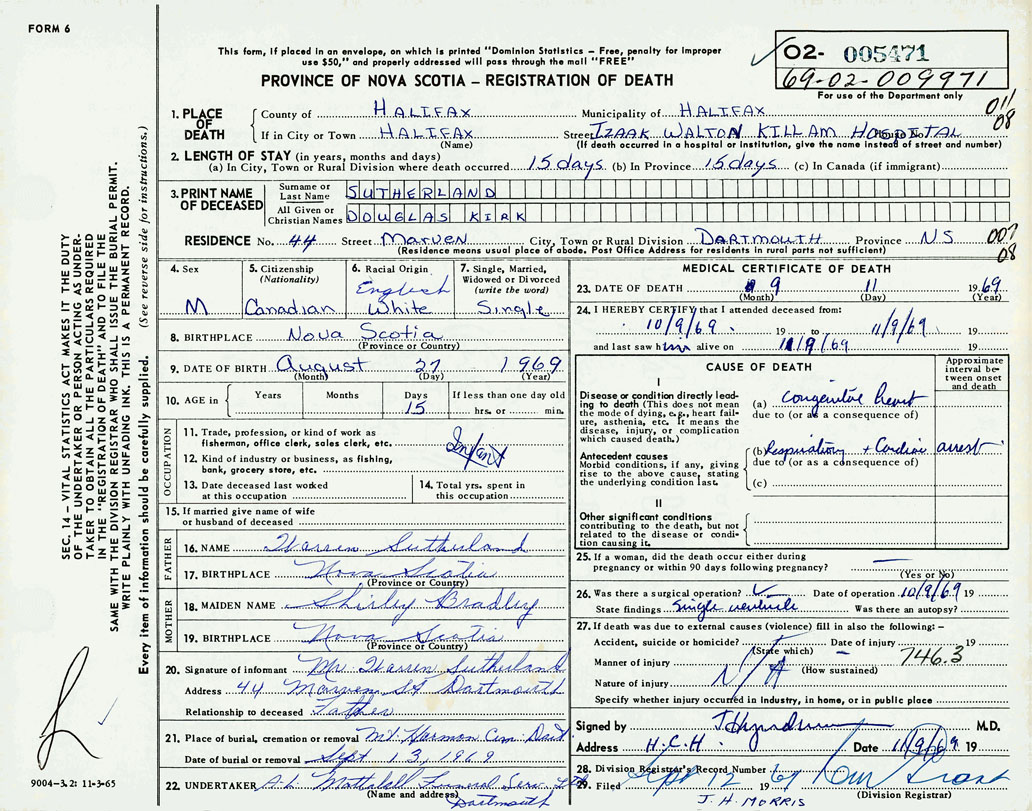 FORM 6
This form, if placed in an envelope, on which is printed "Dominion Statistics – Free, penalty for improper
use $50," and properly addressed will pass through the mail "FREE"
PROVINCE OF NOVA SCOTIA – REGISTRATION OF DEATH
02- 005471
69-02-009971
For use of the Department only
011
08
1. PLACE OF DEATH
County of HALIFAX Municipality of HALIFAX
If in City or Town HALIFAX Street IZAAK WALTON KILLAM HOSPITAL
(Name) (If death occurred in a hospital or institution, give the name instead of street and number)
2. LENGTH OF STAY (in years, months and days)
(a) In City, Town or Rural Division where death occurred 15 days (b) In Province 15 days (c) In Canada (if immigrant)
3. PRINT NAME OF DECEASED
Surname or Last Name SUTHERLAND
All Given or Christian Names DOUGLAS KIRK
RESIDENCE No. 44 Street Marven City, Town or Rural Division DARTMOUTH Province NS
(Residence means usual place of abode. Post Office Address for residents in rural parts not sufficient)
007
08
4. Sex M
5. Citizenship (Nationality) Canadian
6. Racial Origin English White
7. Single, Married, Widowed or Divorced (write the word) Single
8. BIRTHPLACE Nova Scotia
(Province or Country)
9. DATE OF BIRTH August 27 1969
(Month) (Day) (Year)
10. AGE in Years Months Days 15 If less than one day old hrs. or min.
OCCUPATION
11. Trade, profession, or kind of work as fisherman, office clerk, sales clerk, etc.
Infant
12. Kind of industry or business, as fishing, bank, grocery store, etc.
13. Date deceased last worked at this occupation
14. Total yrs. spent in this occupation
15. If married give name of wife or husband of deceased
FATHER
16. NAME Warren Sutherland
17. BIRTHPLACE Nova Scotia
(Province or Country)
MOTHER
18. MAIDEN NAME Shirley Bradley
19. BIRTHPLACE Nova Scotia
(Province or Country)
20. Signature of informant Mr. Warren Sutherland
Address 44 Marven St Dartmouth
Relationship to deceased Father
21. Place of burial, cremation or removal Mt Harmon Cem Dart
Date of burial or removal Sept 13, 1969
22. UNDERTAKER A.L. Mattatall Funeral Serv Ltd
(Name and address) Dartmouth
MEDICAL CERTIFICATE OF DEATH
23. DATE OF DEATH 9 11 1969
(Month) (Day) (Year)
24. I HEREBY CERTIFY that I attended deceased from:
10/9/69 19 to 11/9/69 19
and last saw him alive on 11/9/69 19
CAUSE OF DEATH
Approximate interval between onset and death
I
Disease or condition directly leading to death (This does not mean the mode of dying, e.g., heart failure, asthenia, etc. It means the disease, injury, or complication which caused death.)
(a) congenital heart
due to (or as a consequence of)
Antecedent causes
Morbid conditions, if any, giving rise to the above cause, stating the underlying condition last.
(b) Respiratory + Cardiac arrest
due to (or as a consequence of)
(c)
II
Other significant conditions contributing to the death, but not related to the disease or condition causing it.
25. If a woman, did the death occur either during pregnancy or within 90 days following pregnancy? —
(Yes or No)
26. Was there a surgical operation? ✓ Date of operation 10/9/69 19
State findings Single ventricle Was there an autopsy?
27. If death was due to external causes (violence) fill in also the following: –
Accident, suicide or homicide? (State which) Date of injury 19
746.3
Manner of injury (How sustained)
Nature of injury N/A
Specify whether injury occurred in Industry, in home, or in public place
Signed by M.D.
Address H.C.H. Date 11/9/69 19
28. Division Registrar's Record Number
29. Filed Sept 12 69
(Division Registrar)
J. H. MORRIS
SEC. 14 – VITAL STATISTICS ACT MAKES IT THE DUTY
OF THE UNDERTAKER OR PERSON ACTING AS UNDER-
TAKER TO OBTAIN ALL THE PARTICULARS REQUIRED
IN THE "REGISTRATION OF DEATH" AND TO FILE THE
SAME WITH THE DIVISION REGISTRAR WHO SHALL ISSUE THE BURIAL PERMIT.
WRITE PLAINLY WITH UNFADING INK. THIS IS A PERMANENT RECORD.
Every item of information should be carefully supplied. (See reverse side for instructions.)
9004–3.2: 11-3-65